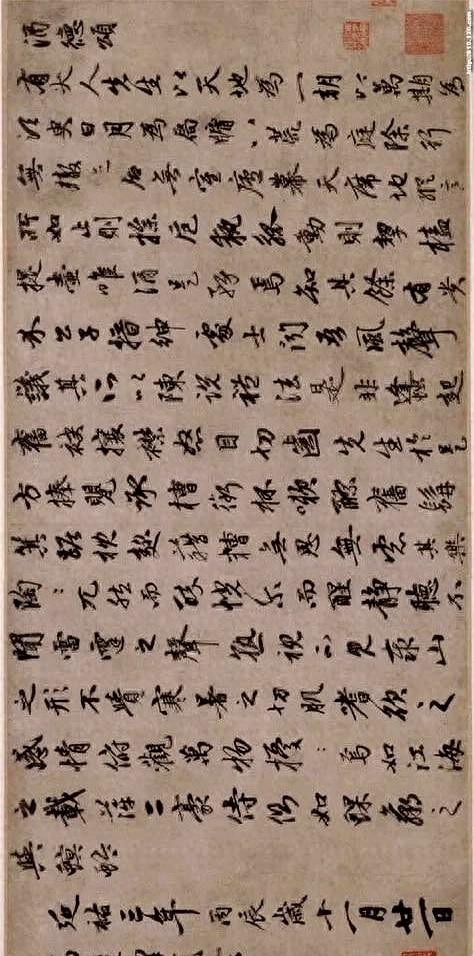 酒德頌
有大人先生以天地為一朝以萬期為
須臾日月為扃牖八荒為庭除行
無轍迹居無室廬幕天席地縱意
所如止則操卮執觚動則挈榼
提壺唯酒是務焉知其餘有貴
介公子搢紳處士聞吾風聲
議其所以陳說禮法是非蠭起
奮袂攘襟怒目切齒先生於是
方捧甖承槽銜杯嗽醪奮髯
箕踞枕麴藉糟無思無慮其樂
陶:兀然而醉恍尔而醒靜聽不
聞雷霆之聲熟視不見泰山
之形不覺寒暑之切肌嗜欲之
感情俯觀萬物擾:焉如江海
之載浮萍二豪侍側如蜾蠃之
與螟蛉
延祐三年丙辰歲十一月廿一日